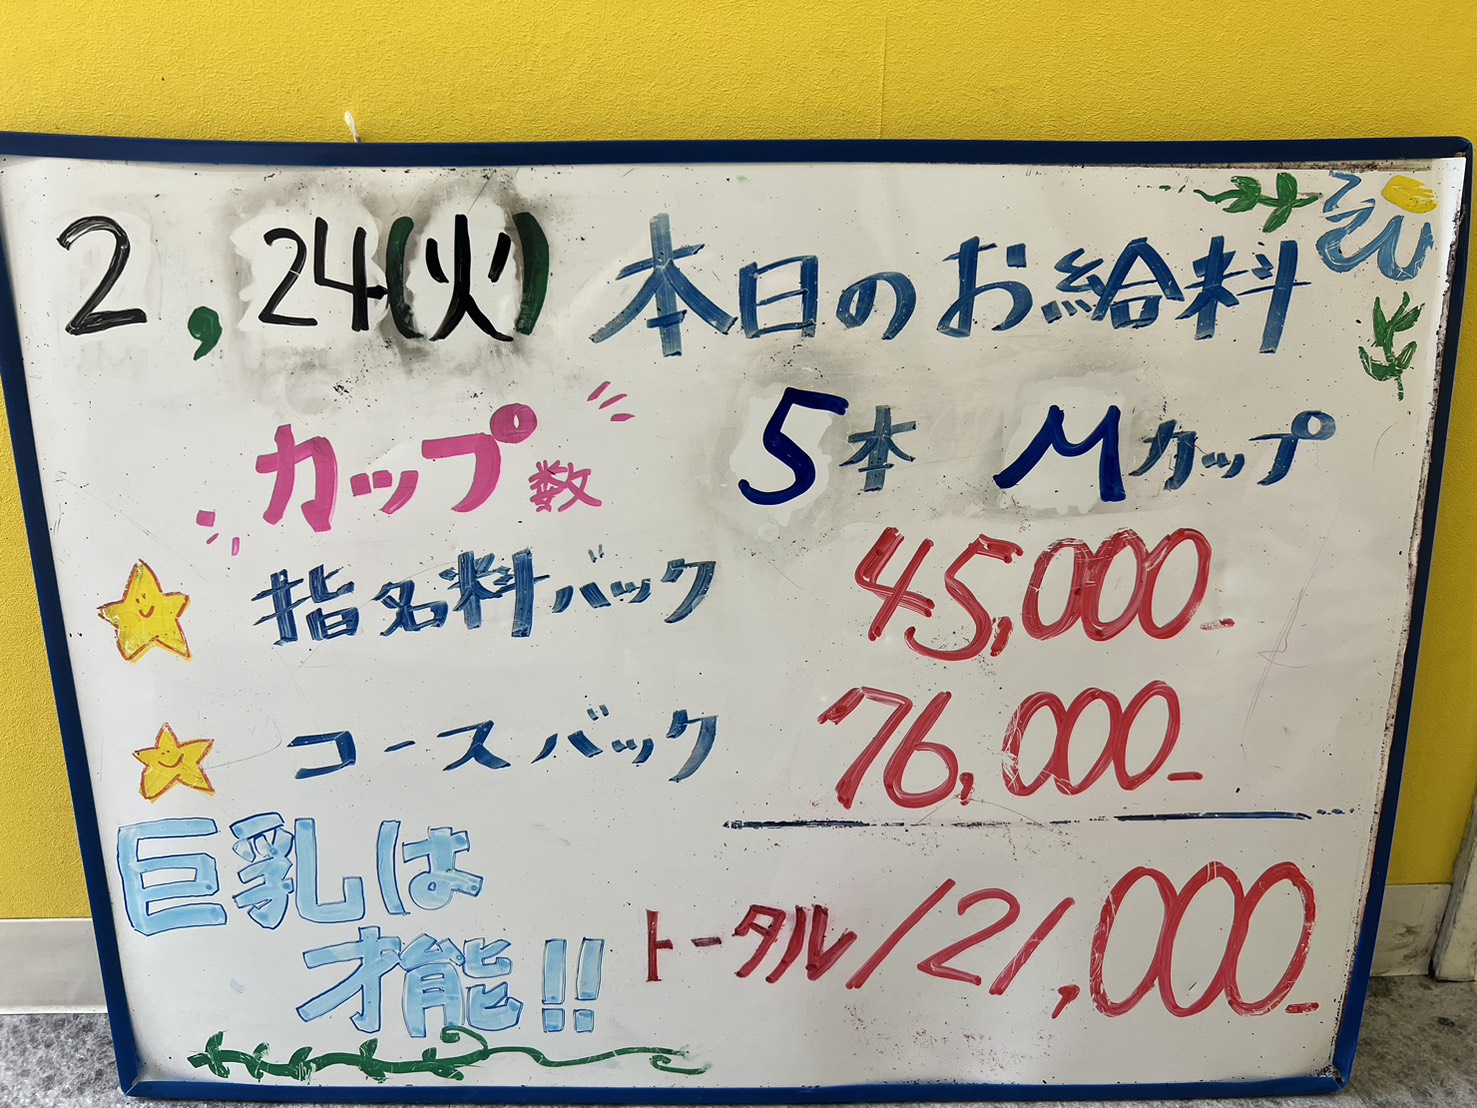 2,24(火) 本日のお給料
カップ数 5本 Mカップ
指名料バック 45,000-
コースバック 76,000-
巨乳は
才能!!
トータル 121,000-